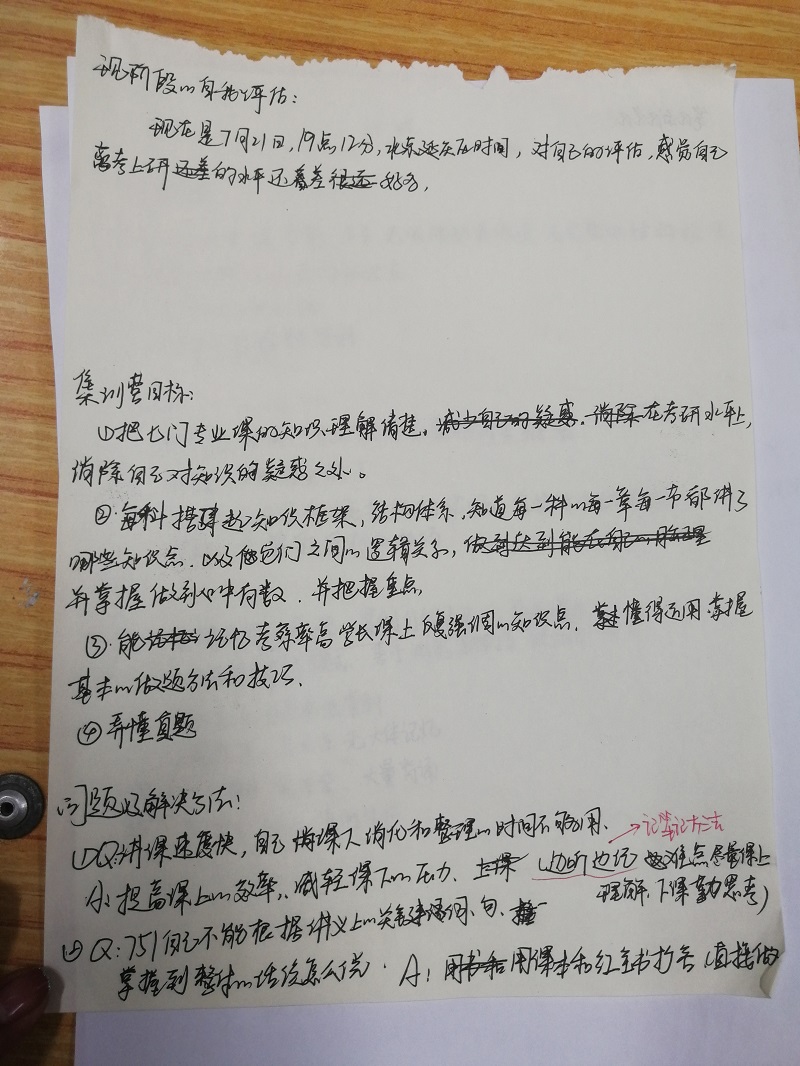 现阶段的自我评估：
现在是7月21日，19点12分，北京延庆区时间，对自己的评估，感觉自己
离考上研还差的水平还差很远 好多，
集训营目标：
①把七门专业课的知识理解清楚，减少自己的疑惑，消除在考研水平上，
消除自己对知识的疑惑之处。
②每科搭建起知识框架，结构体系，知道每一科的每一章每一节都讲了
哪些知识点，以及他它们之间的逻辑关系，做到达到能在自己的
并掌握做到心中有数，并把握重点，
③能记忆考察率高 学长课上反复强调的知识点，懂得运用，掌握
基本的做题方法和技巧，
④弄懂真题
问题及解决方法：
①Q：讲课速度快，自己消化和整理的时间不够用、
→记笔记方法
A：提高课上的效率，减轻课下的压力、上课 边听边记 难点尽量课上
理解，下课勤思考）
② Q：751自己不能根据讲义上的关键词、句、
掌握到整体的话该怎么说． A：用书和用课本和红宝书扩充（直接做